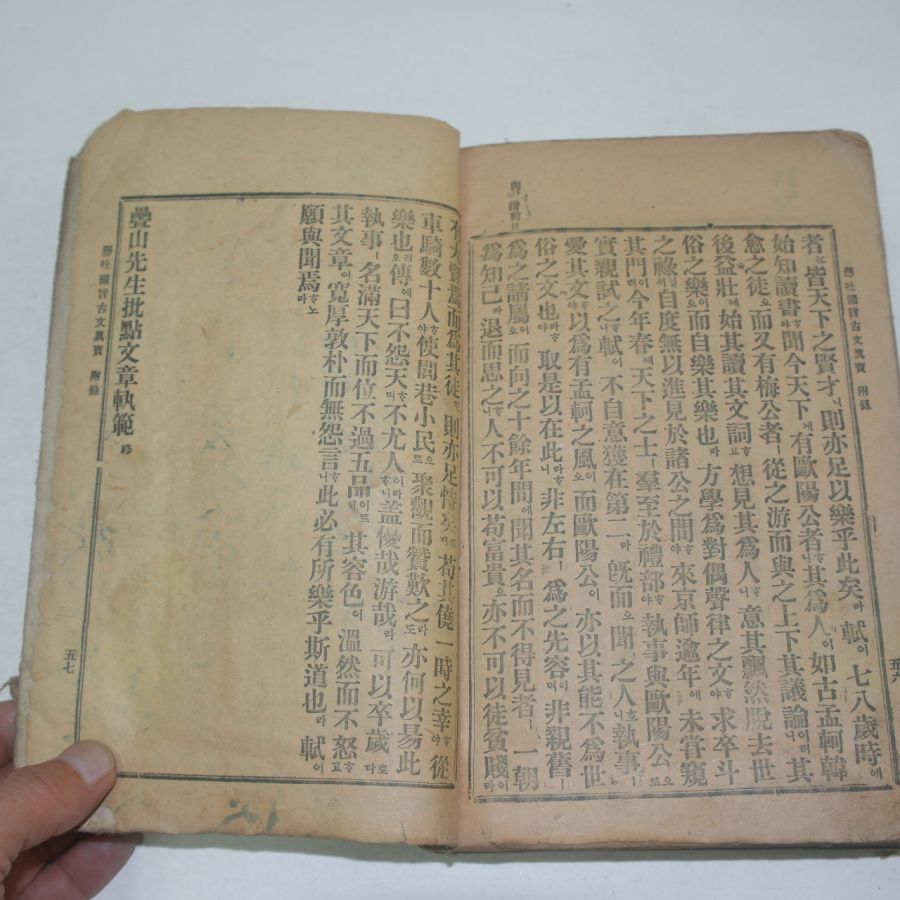 懸吐備旨古文眞寶 附錄
五六
者ᄂᆞᆫ皆天下之賢才ㅣ니則亦足以樂乎此矣라軾이七八歲時에
始知讀書ᄒᆞ야聞今天下에有歐陽公者ᄒᆞ니其爲人이如古孟軻韓
愈之徒오而又有梅公者ㅣ從之游而與之上下其議論이러니其
後益壯에始其讀其文詞ᄒᆞ고想見其爲人ᄒᆞ니意其飄然脫去世
俗之樂이오而自樂其樂也라方學爲對偶聲律之文ᄒᆞ야求卒斗
之祿일ᄉᆡ自度無以進見於諸公之間ᄒᆞ야來京師逾年에未嘗窺
其門이며今年春에天下之士ㅣ羣至於禮部ᄒᆞ야執事與歐陽公으로
實親試之ᄒᆞᆯᄉᆡ軾이不自意獲在第二라旣而오聞之人ᄒᆞ니執事ㅣ
愛其文ᄒᆞ야以爲有孟軻之風이오而歐陽公이亦以其能不爲世
俗之文也라ᄒᆞ야取是以在此라ᄒᆞ니非左右ㅣ爲之先容이며非親舊ㅣ
爲之請屬이오而向之十餘年間에聞其名而不得見者ㅣ一朝
爲知己라退而思之ᄒᆞ니人不可以苟富貴오亦不可以徒貧賤이라
有大賢焉而爲其徒ㅣ면則亦足恃矣로다苟其僥一時之幸ᄒᆞ야從
車騎數十人ᄒᆞ야使閭巷小民으로聚觀而贊歎之라도亦何以易此
樂也리오傳에曰不怨天ᄒᆞ며不尤人이라ᄒᆞ니蓋優哉游哉라可以卒歲로다
執事ㅣ名滿天下而位不過五品이로ᄃᆡ其容色이溫然而不怒ᄒᆞ고
其文章이寬厚敦朴而無怨言ᄒᆞ니此必有所樂乎斯道也라軾이
願與聞焉ᄒᆞ노라
疊山先生批點文章軌範 終
懸吐備旨古文眞寶 附錄
五七